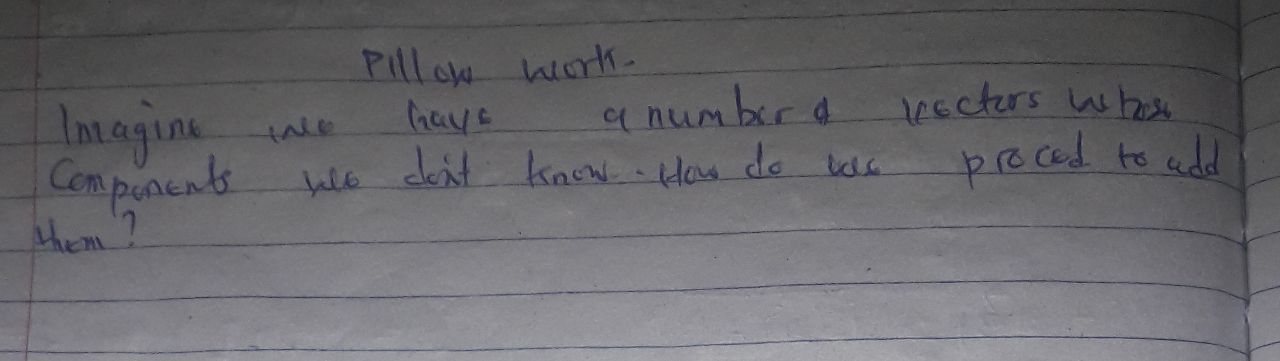 Pillow work.
Imagine we have a number of vectors whose
Components we don't know. How do we proced to add
them?